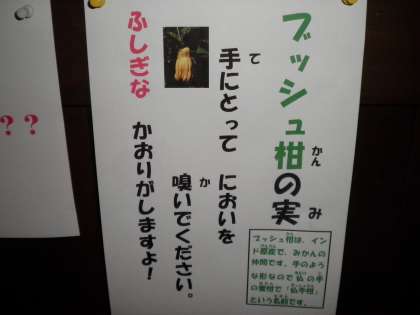 ブッシュ柑の実
かん
み
手にとって においを
て
嗅いでください。
か
ふしぎな かおりがしますよ！
ブッシュ柑は、イン
ド原産で、みかんの
仲間です。手のよう
な形なので仏の手
の蜜柑で「仏手柑」
という名前です。
？？